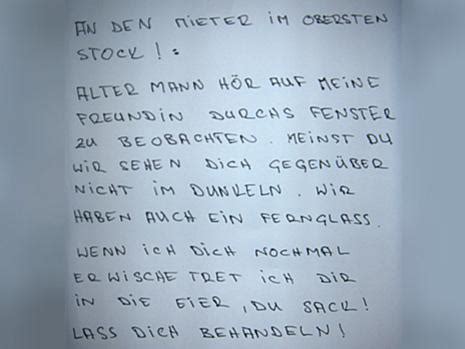 AN DEN MIETER IM OBERSTEN
STOCK! :
ALTER MANN HÖR AUF MEINE
FREUNDIN DURCHS FENSTER
ZU BEOBACHTEN. MEINST DU
WIR SEHEN DICH GEGENÜBER
NICHT IM DUNKELN. WIR
HABEN AUCH EIN FERNGLASS.
WENN ICH DICH NOCHMAL
ERWISCHE TRET ICH DIR
IN DIE EIER, DU SACK!
LASS DICH BEHANDELN!